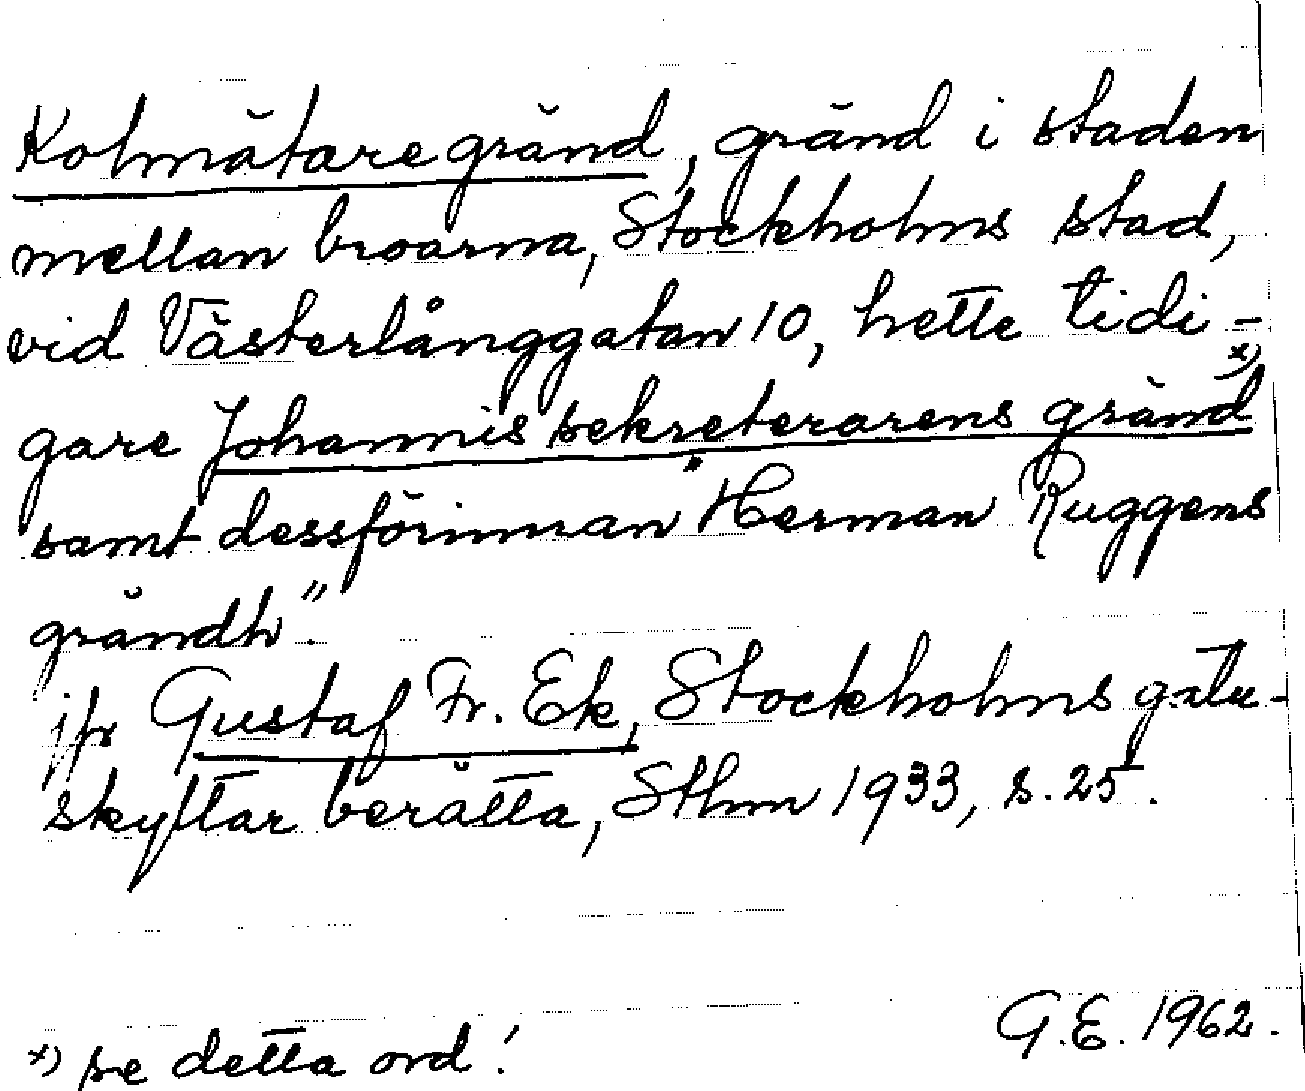 Kolmätaregränd, gränd i staden
mellan broarna, Stockholms stad,
vid Västerlånggatan 10, hette tidi-
gare Johannis sekreterarens gränd x)
samt dessförinnan "Herman Ruggens
grändh".
jfr Gustaf Fr. Ek, Stockholms gatu-
skyltar berätta, Sthm 1933, s. 25.
G.E. 1962.
x) se detta ord!